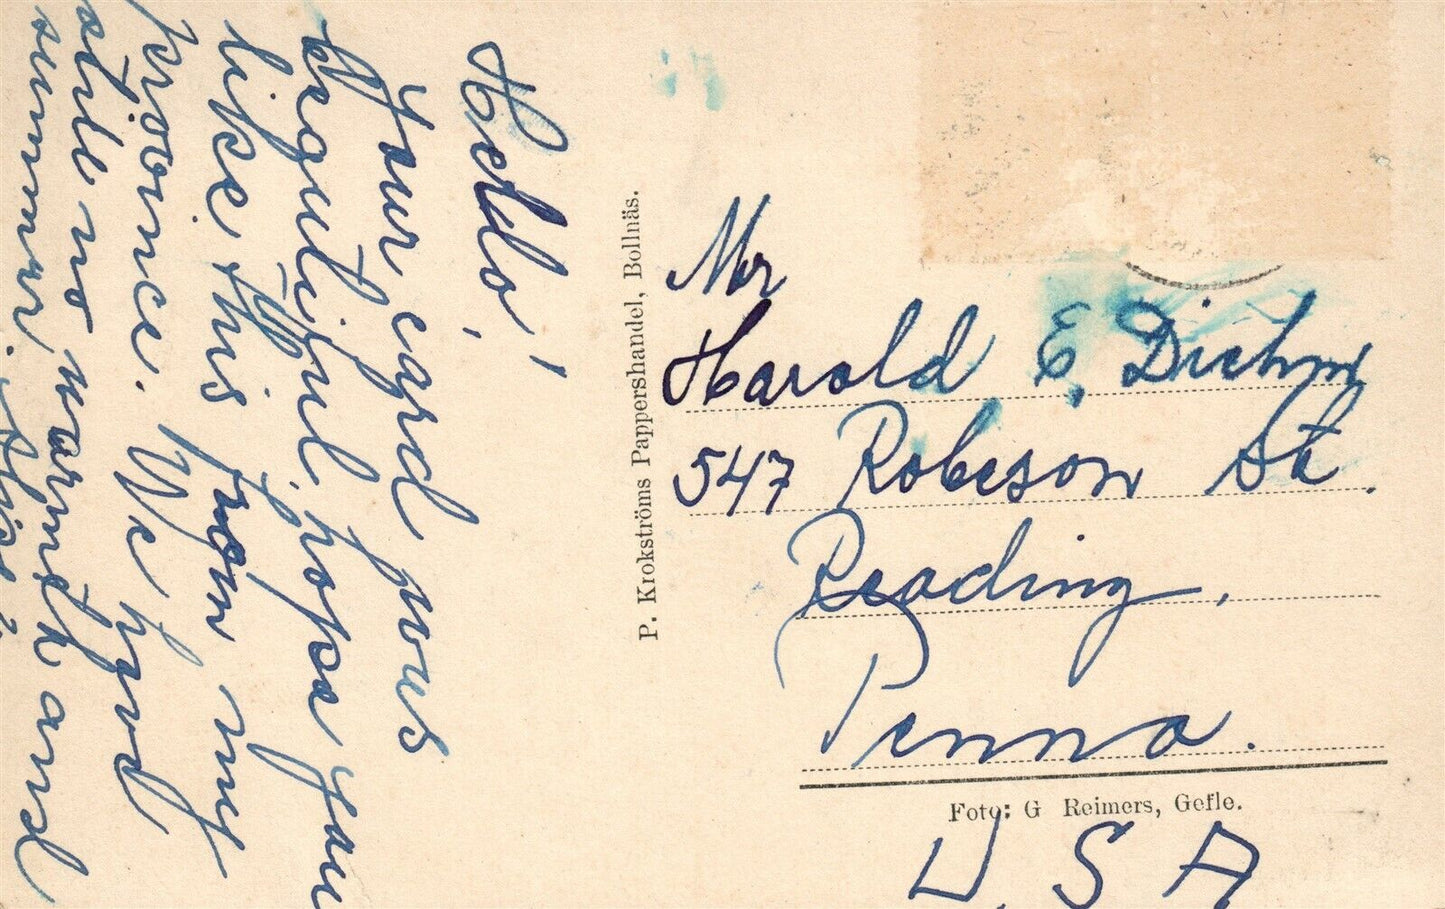 Hello!
Your card was
beautiful, hope you
like this from my
province. We had
still no warmth and
summer.
P. Krokströms Pappershandel, Bollnäs.
Mr
Harold E. Diehm
547 Robeson St.
Reading,
Penna.
Foto: G Reimers, Gefle.
U.S.A